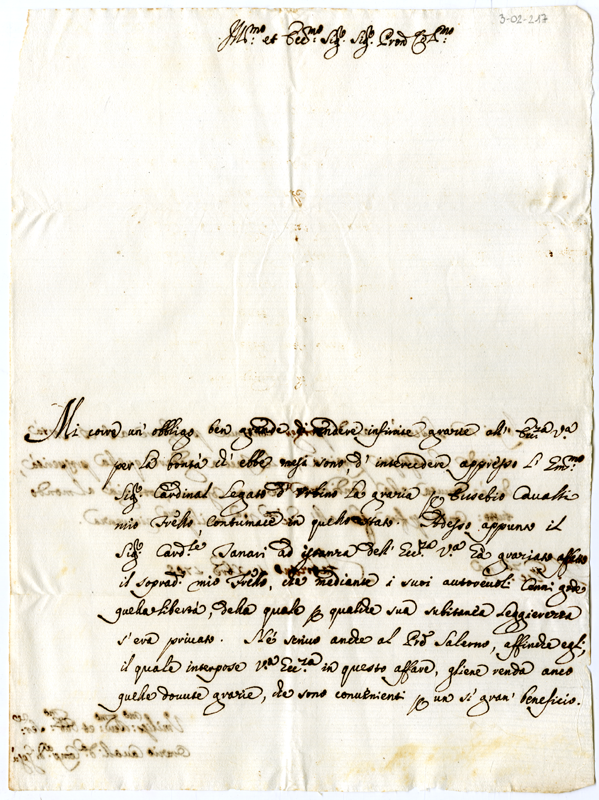 3-02-217
Ill.mo et Ecc.mo Sig.r Sig.r Pron Col.mo
Mi corre un' obbligo ben grande di rendere infinite grazie all' Ecc.za V.a
per la bontà ch' ebbe mesi sono d' intercedere appresso l' Em.mo
Sig.r Cardinal Legato d' Urbino la grazia p Eusebio Cavalli
mio Frello Contumace in quello stato. Adesso appunto il
Sig.r Card.le Tanari ad istanza dell' Ecc.za V.a hà graziato affatto
il soprad.o mio Frello, che mediante i suoi autorevoli Cenni gode
quella libertà, della quale p qualche sua subitanea leggierezza
s' era privato. Nè scrivo anche al P.re Salerno, affinche egli,
il quale interpose V.a Ecc.za in questo affare, gliene renda anco
quelle dovute grazie, che sono convenienti p un sì gran' beneficio.